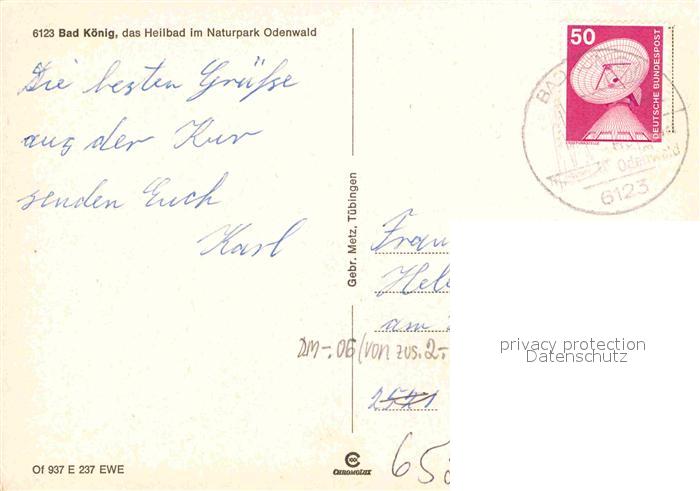 6123 Bad König, das Heilbad im Naturpark Odenwald
Die besten Grüße
aus der Kur
senden Euch
Karl
Of 937 E 237 EWE
Gebr. Metz, Tübingen
CHROMOLUX
50
DEUTSCHE BUNDESPOST
ERDFUNKSTELLE
BAD
Odenwald
6123
Frau
am
DM -.06 (von zus. 2.-
privacy protection
Datenschutz